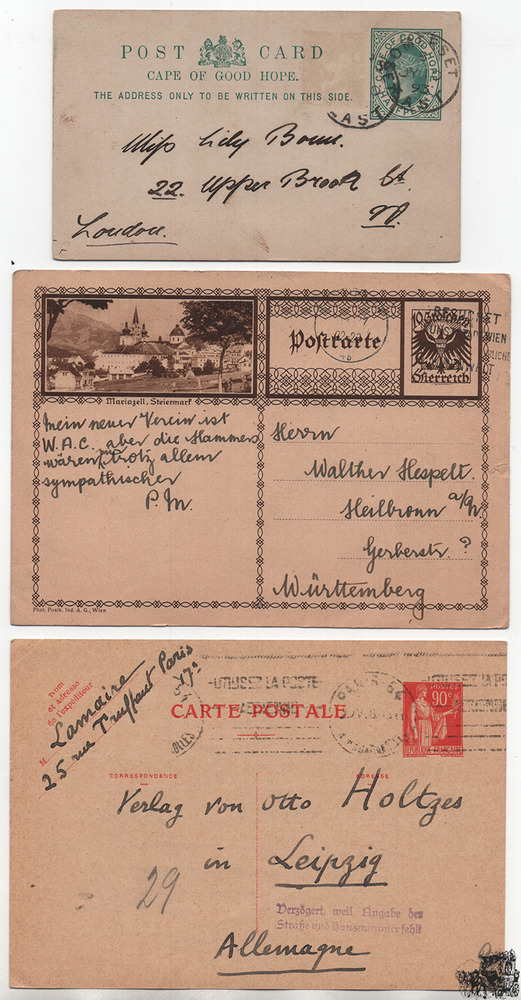 POST CARD
CAPE OF GOOD HOPE.
THE ADDRESS ONLY TO BE WRITTEN ON THIS SIDE.
CAPE OF GOOD HOPE
HALFPENNY
Miss Lily
22. Upper Brook St.
W.
London.
Postkarte
10 Groschen
Österreich
WIEN
Mariazell, Steiermark
Mein neuer Verein ist
W.A.C. aber die Hammers
wären trotz allem
sympathischer
P.M.
Herrn
Walther Hespelt.
Heilbronn a/N.
Gerberstr. ?
Württemberg
Phot. Postk. Ind. A.G., Wien
Nom
et adresse
de l'expéditeur
M Lamaire
25 rue Truffaut Paris
17e
UTILISEZ LA POSTE
AERIENNE
PARIS
CARTE POSTALE
POSTES
90c
CORRESPONDANCE
ADRESSE
Verlag von Otto Holtzes
in Leipzig
29
Verzögert, weil Angabe der
Straße und Hausnummer fehlt
Allemagne